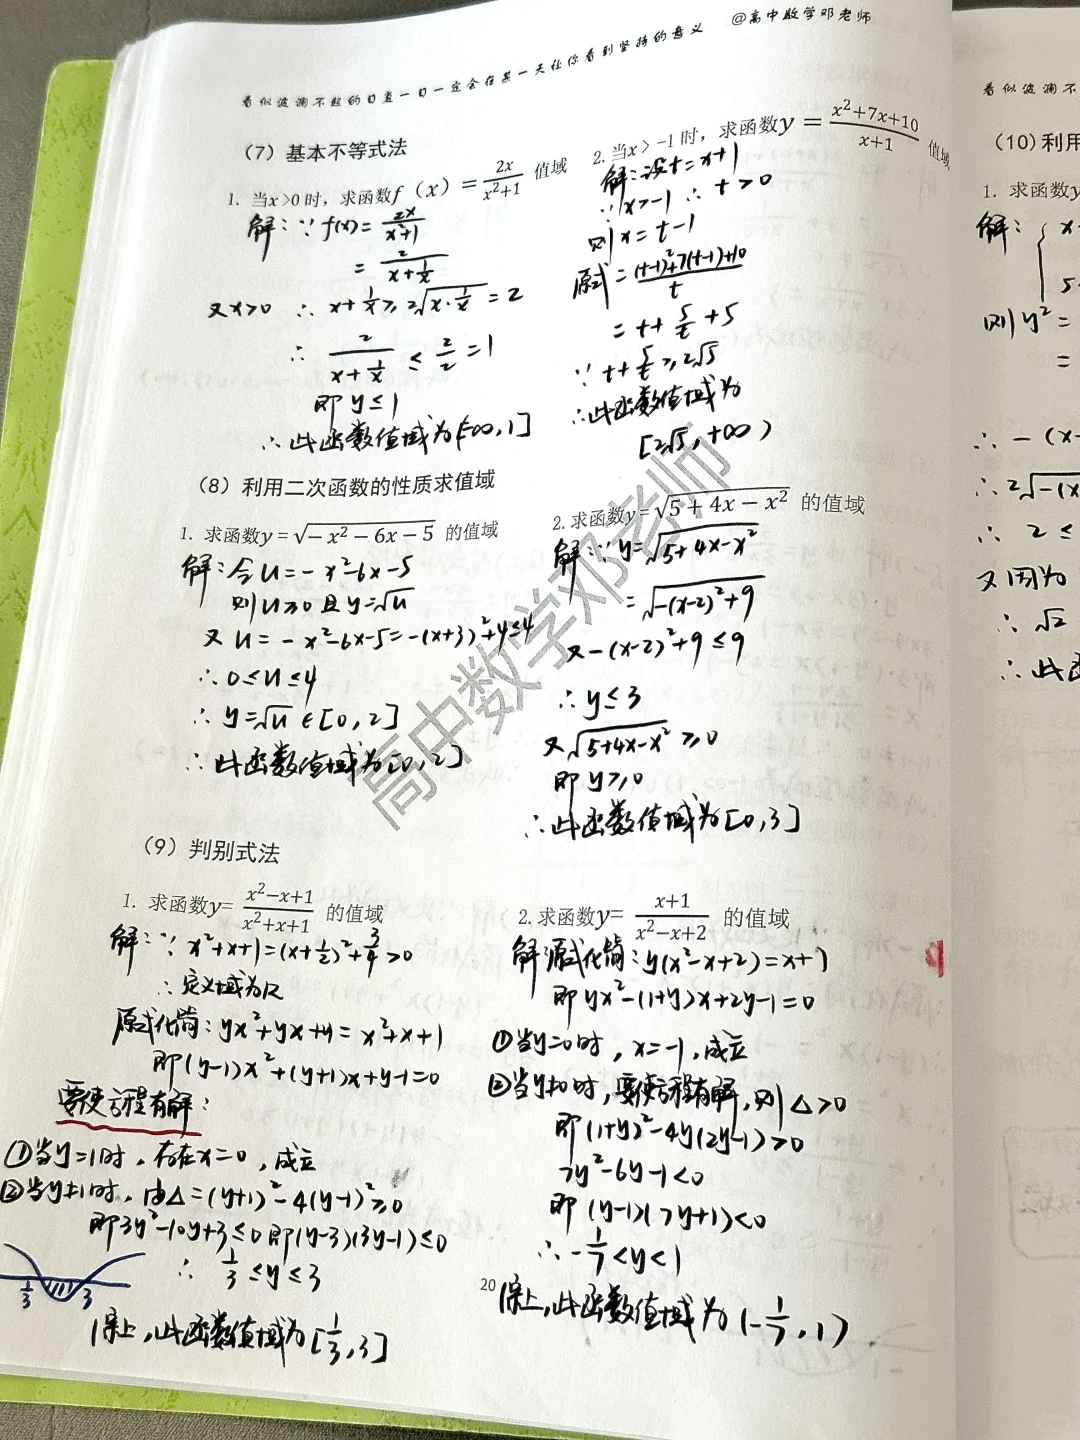 看似波澜不起的日复一日一定会在某一天让你看到坚持的意义 @高中数学邓老师
（7）基本不等式法
1. 当x>0时，求函数f（x）= 2x/(x²+1) 值域
解：∵ f(x)= 2x/(x²+1)
= 2/(x+1/x)
又x>0 ∴ x+1/x ≥ 2√(x·1/x) = 2
∴ 2/(x+1/x) ≤ 2/2 = 1
即 y≤1
∴此函数值域为(-∞,1]
2. 当x>-1时，求函数y= (x²+7x+10)/(x+1) 值域
解：设t=x+1
∵x>-1 ∴ t>0
则x=t-1
原式= ((t-1)²+7(t-1)+10)/t
= t+5/t+5
∵ t+5/t ≥ 2√5
∴此函数值域为
[2√5,+∞)
（8）利用二次函数的性质求值域
1. 求函数y=√(-x²-6x-5) 的值域
解：令u=-x²-6x-5
则u≥0且y=√u
又 u=-x²-6x-5=-(x+3)²+4≤4
∴0≤u≤4
∴y=√u∈[0,2]
∴此函数值域为[0,2]
2. 求函数y=√(5+4x-x²) 的值域
解：∵y=√(5+4x-x²)
=√(-(x-2)²+9)
又-(x-2)²+9≤9
∴y≤3
又√(5+4x-x²)≥0
即y≥0
∴此函数值域为[0,3]
（9）判别式法
1. 求函数y= (x²-x+1)/(x²+x+1) 的值域
解：∵ x²+x+1=(x+1/2)²+3/4>0
∴定义域为R
原式化简：yx²+yx+y=x²+x+1
即(y-1)x²+(y+1)x+y-1=0
要使方程有解：
①当y=1时，存在x=0，成立
②当y≠1时，由△=(y+1)²-4(y-1)²≥0
即3y²-10y+3≤0即(y-3)(3y-1)≤0
∴ 1/3≤y≤3
1/3 3
综上，此函数值域为[1/3,3]
2. 求函数y= (x+1)/(x²-x+2) 的值域
解 原式化简：y(x²-x+2)=x+1
即yx²-(1+y)x+2y-1=0
①当y=0时，x=-1，成立
②当y≠0时，要使方程有解，则△>0
即(1+y)²-4y(2y-1)>0
7y²-6y-1<0
即 (y-1)(7y+1)<0
∴-1/7<y<1
综上，此函数值域为(-1/7,1)
20
高中数学邓老师
看似波澜不
（10）利用
1. 求函数y
解：{ x-
5
则y²=
=
∴-(x-
∴2√-(x
∴ 2≤
又因为
∴ √2
∴此函